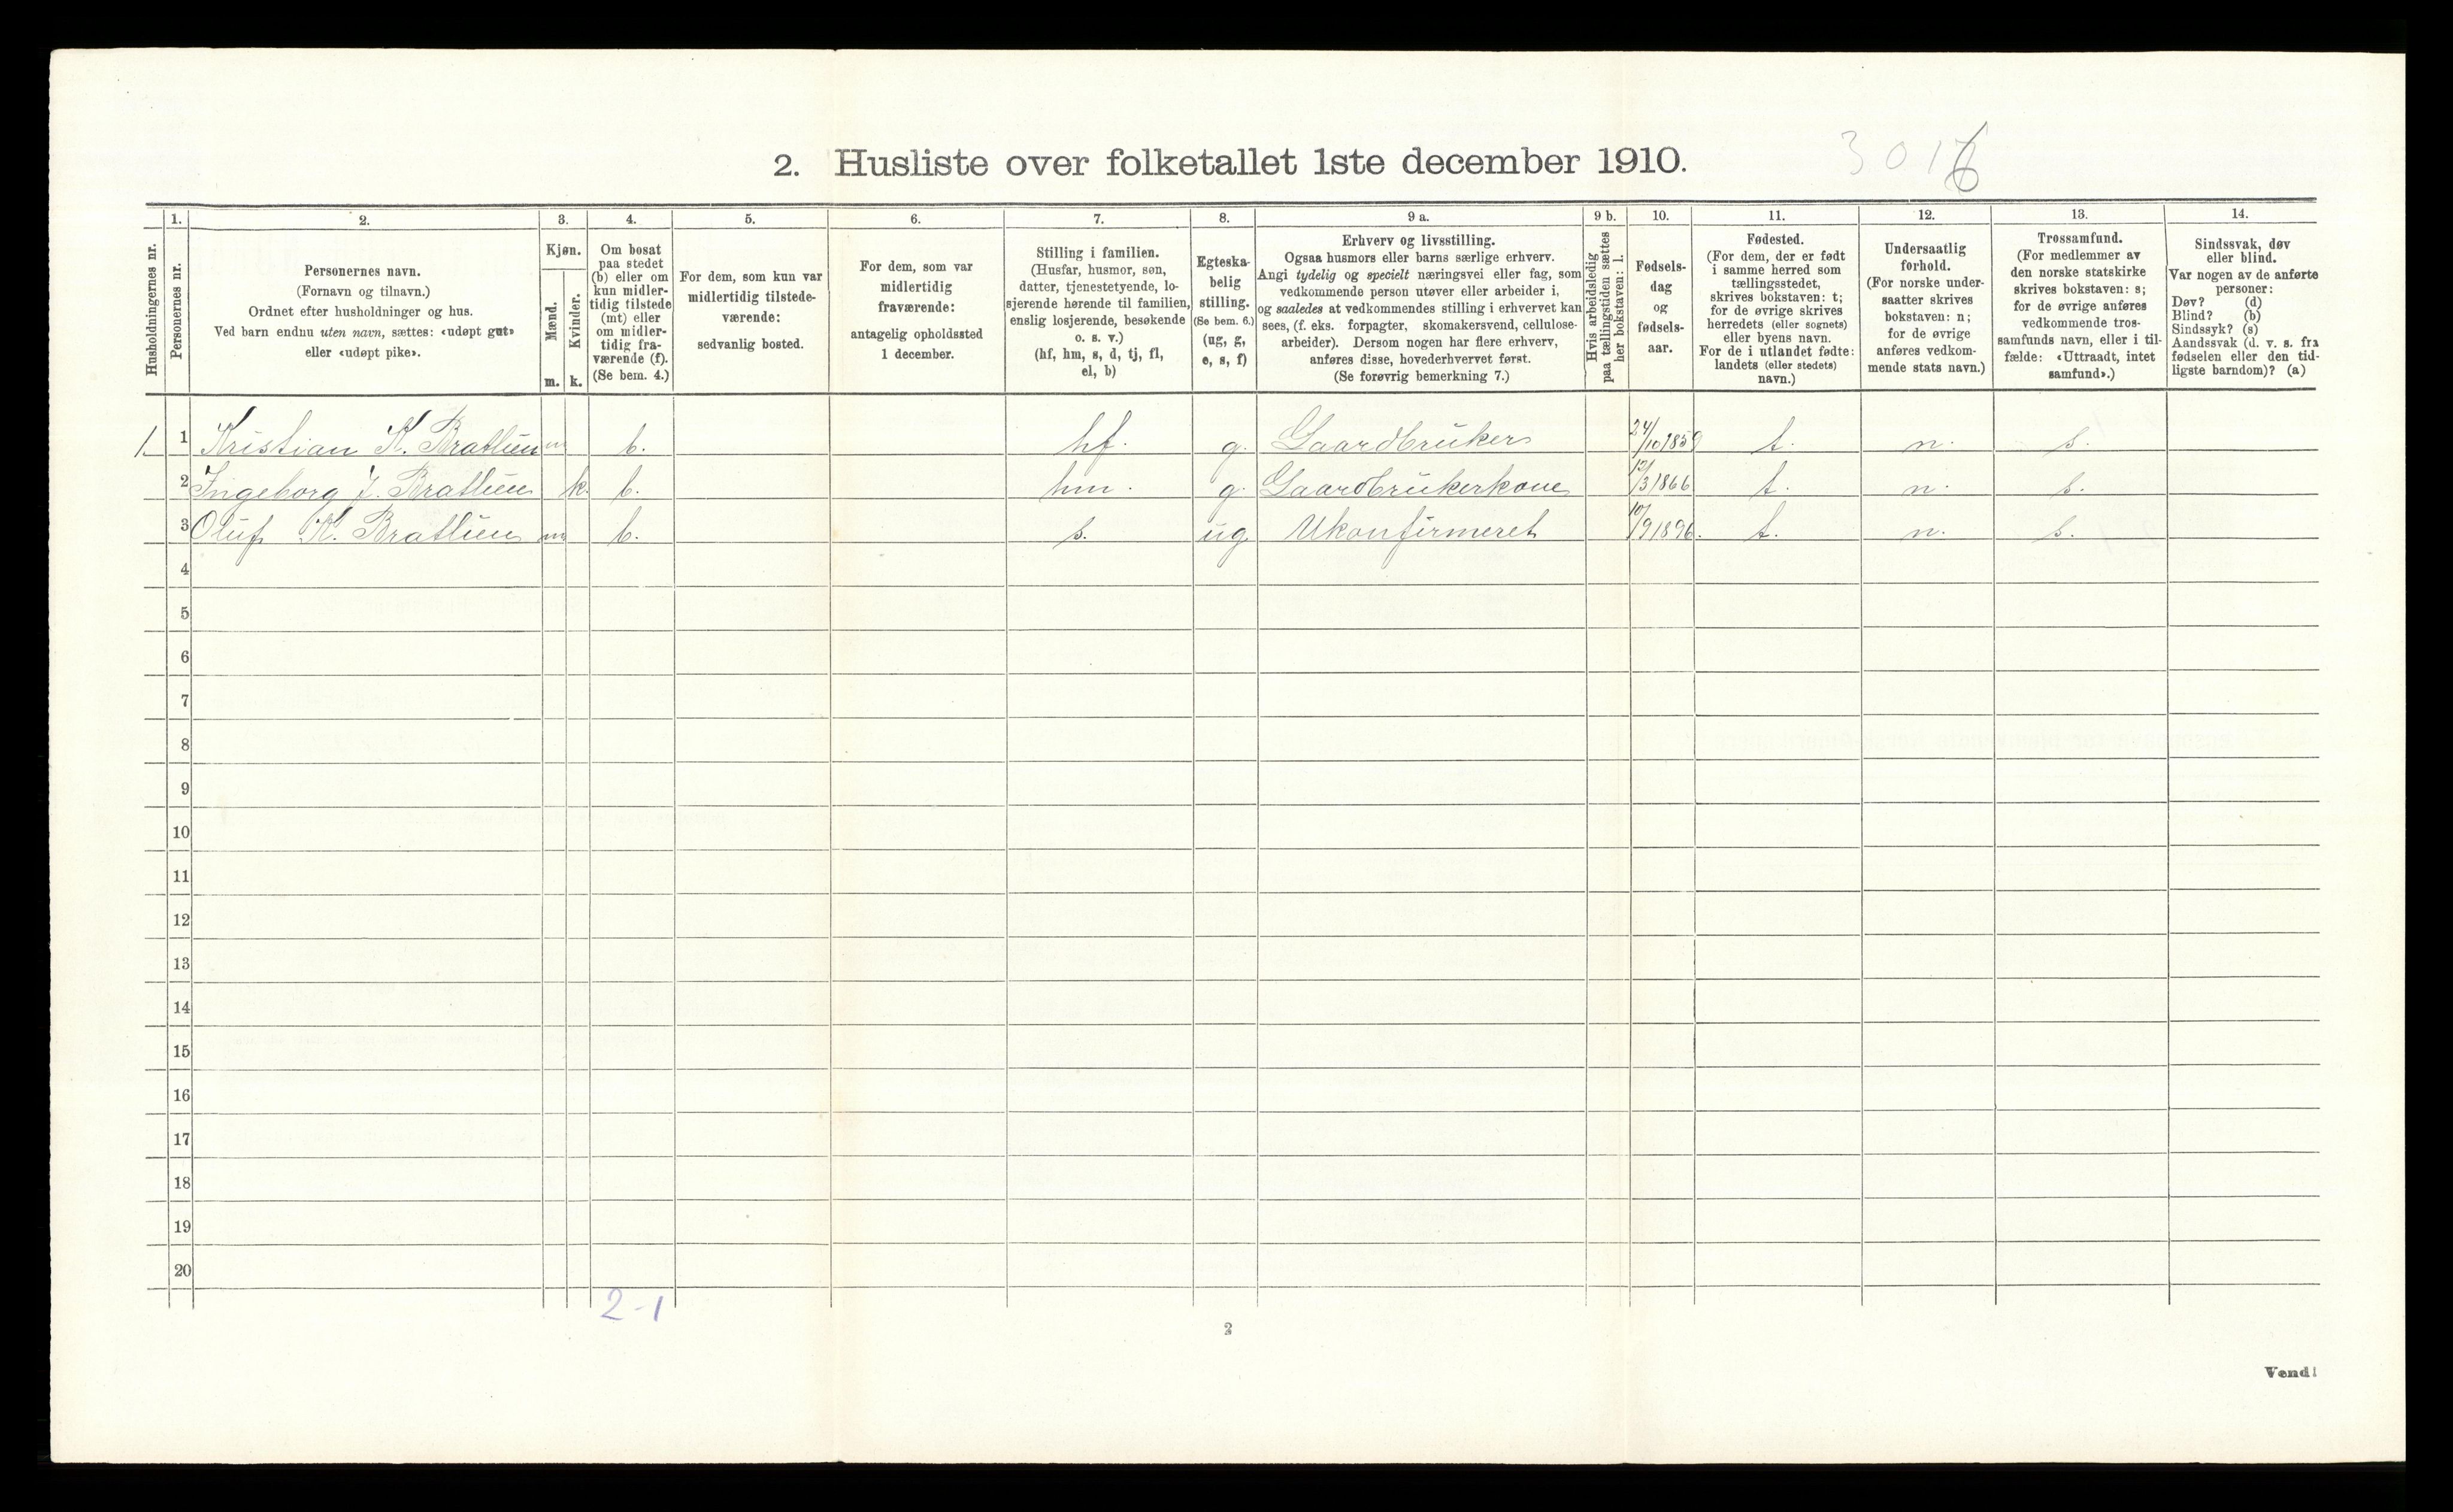 2. Husliste over folketallet 1ste december 1910.
Husholdningernes nr.
1.
Personernes nr.
2.
Personernes navn.
(Fornavn og tilnavn.)
Ordnet efter husholdninger og hus.
Ved barn endnu uten navn, sættes: «udøpt gut»
eller «udøpt pike».
3.
Kjøn.
Mænd.
m.
Kvinder.
k.
4.
Om bosat
paa stedet
(b) eller om
kun midler-
tidig tilstede
(mt) eller
om midler-
tidig fra-
værende (f).
(Se bem. 4.)
5.
For dem, som kun var
midlertidig tilstede-
værende:
sedvanlig bosted.
6.
For dem, som var
midlertidig
fraværende:
antagelig opholdssted
1 december.
7.
Stilling i familien.
(Husfar, husmor, søn,
datter, tjenestetyende, lo-
sjerende hørende til familien,
enslig losjerende, besøkende
o. s. v.)
(hf, hm, s, d, tj, fl,
el, b)
8.
Egteska-
belig
stilling.
(Se bem. 6.)
(ug, g,
e, s, f)
9 a.
Erhverv og livsstilling.
Ogsaa husmors eller barns særlige erhverv.
Angi tydelig og specielt næringsvei eller fag, som
vedkommende person utøver eller arbeider i,
og saaledes at vedkommendes stilling i erhvervet kan
sees, (f. eks. forpagter, skomakersvend, cellulose-
arbeider). Dersom nogen har flere erhverv,
anføres disse, hovederhvervet først.
(Se forøvrig bemerkning 7.)
9 b.
Hvis arbeidsledig
paa tællingstiden sættes
her bokstaven: l.
10.
Fødsels-
dag
og
fødsels-
aar.
11.
Fødested.
(For dem, der er født
i samme herred som
tællingsstedet,
skrives bokstaven: t;
for de øvrige skrives
herredets (eller sognets)
eller byens navn.
For de i utlandet fødte:
landets (eller stedets)
navn.)
12.
Undersaatlig
forhold.
(For norske under-
saatter skrives
bokstaven: n;
for de øvrige
anføres vedkom-
mende stats navn.)
13.
Trossamfund.
(For medlemmer av
den norske statskirke
skrives bokstaven: s;
for de øvrige anføres
vedkommende tros-
samfunds navn, eller i til-
fælde: «Uttraadt, intet
samfund».)
14.
Sindssvak, døv
eller blind.
Var nogen av de anførte
personer:
Døv? (d)
Blind? (b)
Sindssyk? (s)
Aandssvak (d. v. s. fra
fødselen eller den tid-
ligste barndom)? (a)
1. 1 Kristian K. Bratlien m b. hf. g. Gaardbruker 24/10 1859 t. n. s.
2 Ingeborg J. Bratlien k. b. hm. g. Gaardbrukerkone 12/3 1866 t. n. s.
3 Oluf K. Bratlien m b. s. ug Ukonfirmeret 10/9 1896. t. n. s.
4
5
6
7
8
9
10
11
12
13
14
15
16
17
18
19
20
2-1
2
Vend!